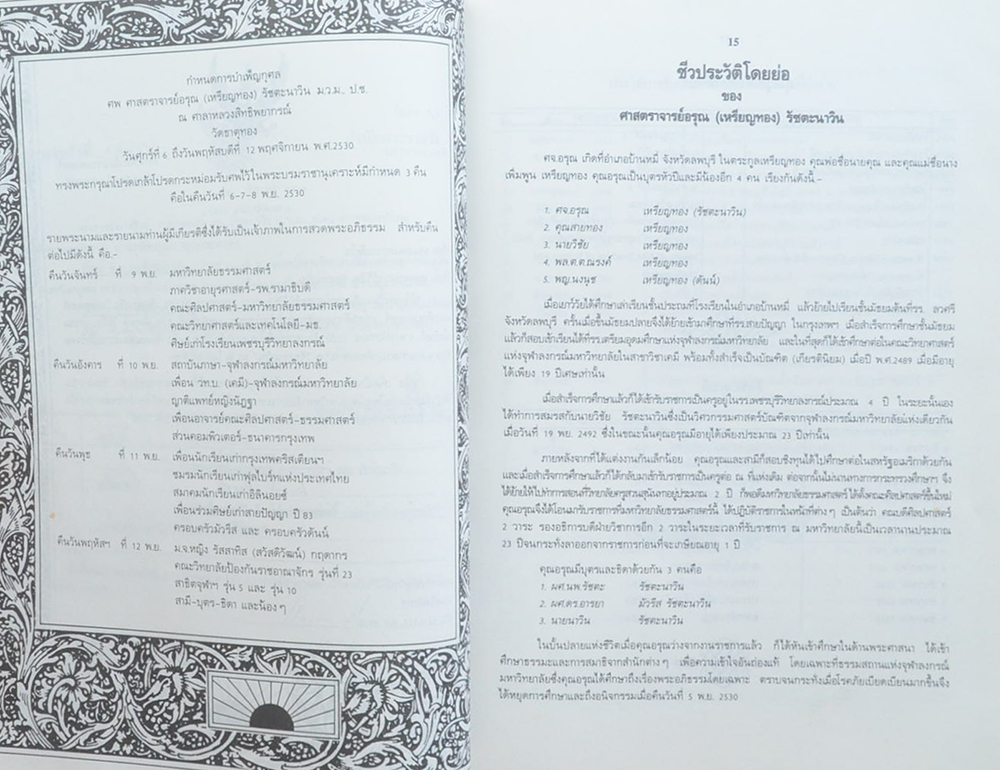 กำหนดการบำเพ็ญกุศล
ศพ ศาสตราจารย์อรุณ (เหรียญทอง) รัชตะนาวิน ม.ว.ม., ป.ช.
ณ ศาลาหลวงสิทธิพยากรณ์
วัดธาตุทอง
วันศุกร์ที่ 6 ถึงวันพฤหัสบดีที่ 12 พฤศจิกายน พ.ศ.2530
ทรงพระกรุณาโปรดเกล้าโปรดกระหม่อมรับศพไว้ในพระบรมราชานุเคราะห์มีกำหนด 3 คืน
คือในคืนวันที่ 6-7-8 พ.ย. 2530
รายพระนามและรายนามท่านผู้มีเกียรติซึ่งได้รับเป็นเจ้าภาพในการสวดพระอภิธรรม สำหรับคืน
ต่อไปมีดังนี้ คือ.-
คืนวันจันทร์ ที่ 9 พ.ย. มหาวิทยาลัยธรรมศาสตร์
ภาควิชาอายุรศาสตร์-รพ.รามาธิบดี
คณะศิลปศาสตร์-มหาวิทยาลัยธรรมศาสตร์
คณะวิทยาศาสตร์และเทคโนโลยี-มธ.
ศิษย์เก่าโรงเรียนเพชรบุรีวิทยาลงกรณ์
คืนวันอังคาร ที่ 10 พ.ย. สถาบันภาษา-จุฬาลงกรณ์มหาวิทยาลัย
เพื่อน วท.บ. (เคมี)-จุฬาลงกรณ์มหาวิทยาลัย
ญาติแพทย์หญิงนัฎฐา
เพื่อนอาจารย์คณะศิลปศาสตร์-ธรรมศาสตร์
ส่วนคอมพิวเตอร์-ธนาคารกรุงเทพ
คืนวันพุธ ที่ 11 พ.ย. เพื่อนนักเรียนเก่ากรุงเทพคริสเตียนฯ
ชมรมนักเรียนเก่าฟุลไบร์ทแห่งประเทศไทย
สมาคมนักเรียนเก่าอิลินอยซ์
เพื่อนร่วมศิษย์เก่าสายปัญญา ปี 83
ครอบครัวมัวรีส และ ครอบครัวดันน์
คืนวันพฤหัสฯ ที่ 12 พ.ย. ม.จ.หญิง รัสสาทิส (สวัสดิวัฒน์) กฤดากร
คณะวิทยาลัยป้องกันราชอาณาจักร รุ่นที่ 23
สาธิตจุฬาฯ รุ่น 5 และ รุ่น 10
สามี-บุตร-ธิดา และน้องๆ
15
ชีวประวัติโดยย่อ
ของ
ศาสตราจารย์อรุณ (เหรียญทอง) รัชตะนาวิน
ศจ.อรุณ เกิดที่อำเภอบ้านหมี่ จังหวัดลพบุรี ในตระกูลเหรียญทอง คุณพ่อชื่อนายคุณ และคุณแม่ชื่อนาง
เพิ่มพูน เหรียญทอง คุณอรุณเป็นบุตรหัวปีและมีน้องอีก 4 คน เรียงกันดังนี้.-
1. ศจ.อรุณ เหรียญทอง (รัชตะนาวิน)
2. คุณสายทอง เหรียญทอง
3. นายวิชัย เหรียญทอง
4. พล.ต.ต.ณรงค์ เหรียญทอง
5. พญ.นงนุช เหรียญทอง (ดันน์)
เมื่อเยาว์วัยได้ศึกษาเล่าเรียนชั้นประถมที่โรงเรียนในอำเภอบ้านหมี่ แล้วย้ายไปเรียนชั้นมัธยมต้นที่รร. ลวศรี
จังหวัดลพบุรี ครั้นเมื่อขึ้นมัธยมปลายจึงได้ย้ายเข้ามาศึกษาที่รร.สายปัญญา ในกรุงเทพฯ เมื่อสำเร็จการศึกษาชั้นมัธยม
แล้วก็สอบเข้าเรียนได้ที่รร.เตรียมอุดมศึกษาแห่งจุฬาลงกรณ์มหาวิทยาลัย และในที่สุดก็ได้เข้าศึกษาต่อในคณะวิทยาศาสตร์
แห่งจุฬาลงกรณ์มหาวิทยาลัยในสาขาวิชาเคมี พร้อมทั้งสำเร็จเป็นบัณฑิต (เกียรตินิยม) เมื่อปี พ.ศ.2489 เมื่อมีอายุ
ได้เพียง 19 ปีเศษเท่านั้น
เมื่อสำเร็จแล้วก็ได้เข้ารับราชการเป็นครูอยู่ในรร.เพชรบุรีวิทยาลงกรณ์ประมาณ 4 ปี ในระยะนั้นเอง
ได้ทำการสมรสกับนายวิชัย รัชตะนาวินซึ่งเป็นวิศวกรรมศาสตร์บัณฑิตจากจุฬาลงกรณ์มหาวิทยาลัยแห่งเดียวกัน
เมื่อวันที่ 19 พ.ย. 2492 ซึ่งในขณะนั้นคุณอรุณมีอายุได้เพียงประมาณ 23 ปีเท่านั้น
ภายหลังจากที่ได้แต่งงานกันเล็กน้อย คุณอรุณและสามีก็สอบชิงทุนได้ไปศึกษาต่อในสหรัฐอเมริกาด้วยกัน
และเมื่อสำเร็จการศึกษาแล้วก็ได้กลับมาเข้ารับราชการเป็นครูต่อ ณ ที่แห่งเดิม ต่อจากนั้นไม่นานทางการกระทรวงศึกษาฯ จึง
ได้ย้ายให้ไปทำการสอนที่วิทยาลัยครูสวนสุนันทาอยู่ประมาณ 2 ปี ก็พอดีมหาวิทยาลัยธรรมศาสตร์ได้ตั้งคณะศิลปศาสตร์ขึ้นใหม่
คุณอรุณจึงได้โอนมารับราชการที่มหาวิทยาลัยธรรมศาสตร์นี้ ได้ปฏิบัติราชการในหน้าที่ต่างๆ เป็นต้นว่า คณบดีศิลปศาสตร์
2 วาระ รองอธิการบดีฝ่ายวิชาการอีก 2 วาระในระยะเวลาที่รับราชการ ณ มหาวิทยาลัยนี้เป็นเวลานานประมาณ
23 ปีจนกระทั่งลาออกจากราชการก่อนที่จะเกษียณอายุ 1 ปี
คุณอรุณมีบุตรและธิดาด้วยกัน 3 คนคือ
1. ผศ.นพ.รัชตะ รัชตะนาวิน
2. ผศ.ดร.อารยา มัวรีส รัชตะนาวิน
3. นายนาวิน รัชตะนาวิน
ในบั้นปลายแห่งชีวิตเมื่อคุณอรุณว่างจากงานราชการแล้ว ก็ได้หันเข้าศึกษาในด้านพระศาสนา ได้เข้า
ศึกษาธรรมะและการสมาธิจากสำนักต่างๆ เพื่อความเข้าใจอันถ่องแท้ โดยเฉพาะที่ธรรมสถานแห่งจุฬาลงกรณ์
มหาวิทยาลัยซึ่งคุณอรุณได้ศึกษาถึงเรื่องพระอภิธรรมโดยเฉพาะ ตราบจนกระทั่งเมื่อโรคภัยเบียดเบียนมากขึ้นจึง
ได้หยุดการศึกษาและถึงอนิจกรรมเมื่อคืนวันที่ 5 พ.ย. 2530